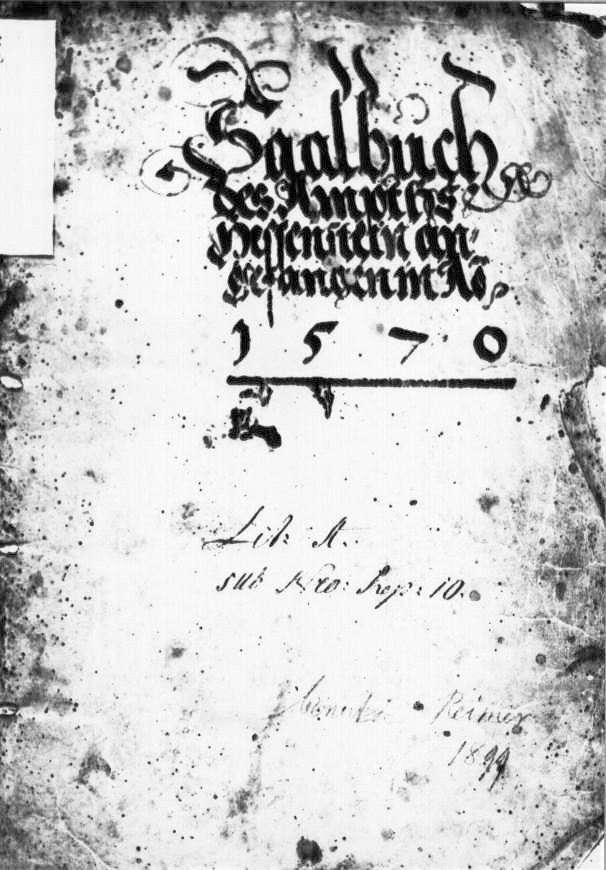 Saalbuch
des Ampthts
Hessenstein an-
gefangen in Aō
1570
Lit: A.
sub Nro: Rep: 10.
Reimer
1899